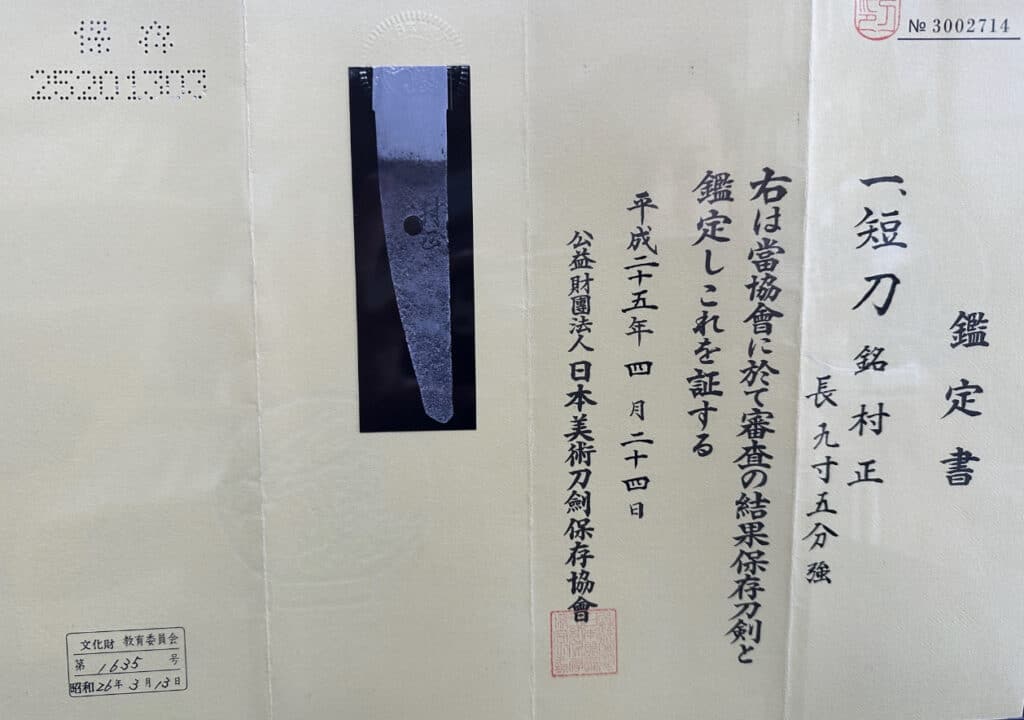 № 3002714
鑑定書
一、短刀 銘 村正
長九寸五分強
右は當協會に於て審査の結果保存刀剣と
鑑定しこれを証する
平成二十五年四月二十四日
公益財團法人日本美術刀劍保存協會
保存
25201303
文化財 教育委員会
第 1635 号
昭和26年3月13日